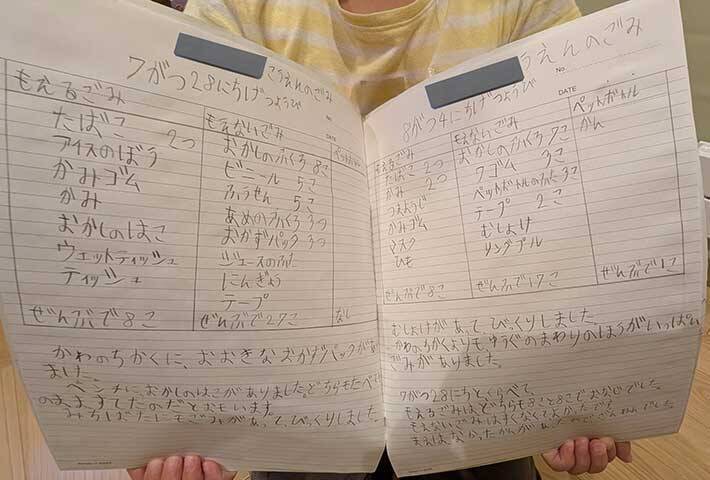 7がつ28にちげつようび
こうえんのごみ
もえるごみ
たばこ 2つ
アイスのぼう
かみゴム
かみ
おかしのはこ
ウェットティッシュ
ティッシュ
ぜんぶで8こ
もえないごみ
おかしのふくろ 8こ
ビニール 5こ
ふうせん 5こ
あめのふくろ 3つ
おかずパック 3つ
ジュースのふた
にんぎょう
テープ
ぜんぶで27こ
ペットボトル
なし
かわのちかくに、おおきなおかずパックがあ
ました。
ベンチに、おかしのはこがありました。どちらもたべて
のままますてたのだとおもいます。
みちばたにもごみがあって、びっくりしました。
うえんのごみ
No.
8がつ4にちげつようび
DATE
もえるごみ
たばこ 2つ
かみ 2つ
つまようじ
かみゴム
マスク
ひも
ぜんぶで8こ
もえないごみ
おかしのふくろ 7こ
ワゴム 3こ
ペットボトルのふた 3こ
テープ 2こ
むしよけ
リングプル
ぜんぶで17こ
ペットボトル
かん
ぜんぶで1こ
むしよけがあって、びっくりしました。
かわのちかくよりも、ゆうぐのまわりのほうがいっぱい
ごみがありました。
7がつ28にちとくらべて、
もえるごみはどちらも8こと8こでおなじでした。
もえないごみはすくなくてよかったです。
まえはなかったかんがあったので